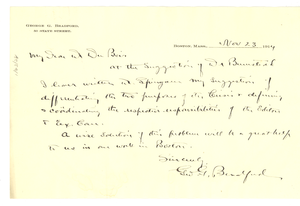 GEORGE G. BRADFORD,
BOSTON, MASS., Nov 23, 1914
My dear Dr Du Bois
At the suggestion of Dr Brumstad
I have written at my suggestion of
differentiating the two purposes of the Crisis & defining
& coordinating the respective responsibilities of the Editor
& Ex. Com.
A wise solution of this problem will be a great help
to us in our work in Boston.
Sincerely
Geo. G. Bradford